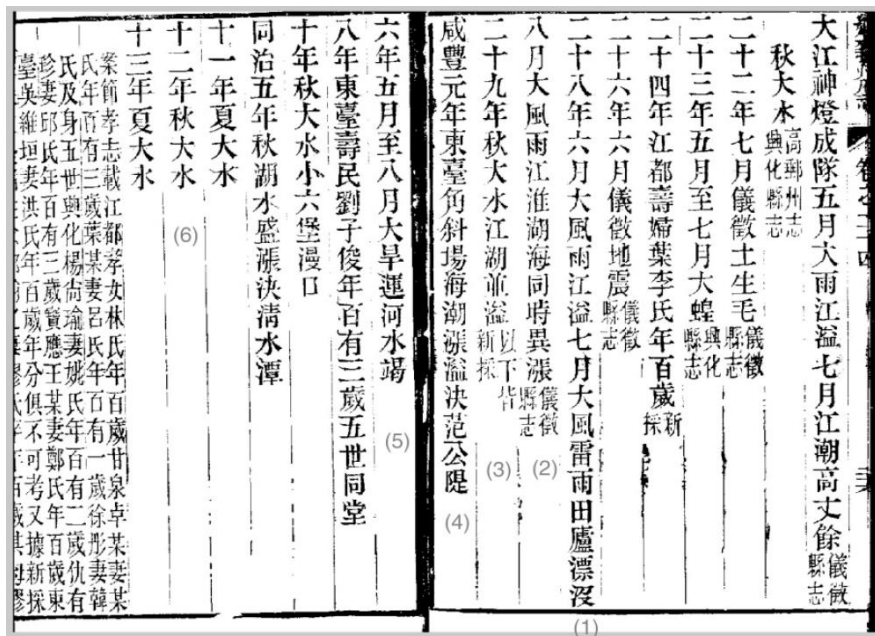 卷之二十四
大江神燈成隊五月大雨江溢七月江潮高丈餘儀徵縣志
秋大水高郵州志興化縣志
二十二年七月儀徵土生毛儀徵縣志
二十三年五月至七月大蝗興化縣志
二十四年江都壽婦葉李氏年百歲新採
二十六年六月儀徵地震儀徵縣志
二十八年六月大風雨江溢七月大風雷雨田廬漂沒
(1)
八月大風雨江淮湖海同時異漲儀徵縣志
(2)
二十九年秋大水江湖並溢以下皆新採
(3)
咸豐元年東臺角斜場海潮漲溢決范公隄
(4)
六年五月至八月大旱運河水竭
(5)
八年東臺壽民劉子俊年百有三歲五世同堂
十年秋大水小六堡漫口
同治五年秋湖水盛漲決清水潭
十一年夏大水
十二年秋大水
(6)
十三年夏大水
案節孝志載江都孝女林氏年百歲甘泉卓某妻某
氏年百有三歲葉某妻呂氏年百有一歲徐彤妻韓
氏及身五世興化楊尙瑜妻姚氏年百有二歲仇有
珍妻邱氏年百有三歲寶應王某妻鄭氏年百歲東
臺吳維垣妻洪氏年百歲年分俱不可考又據新採